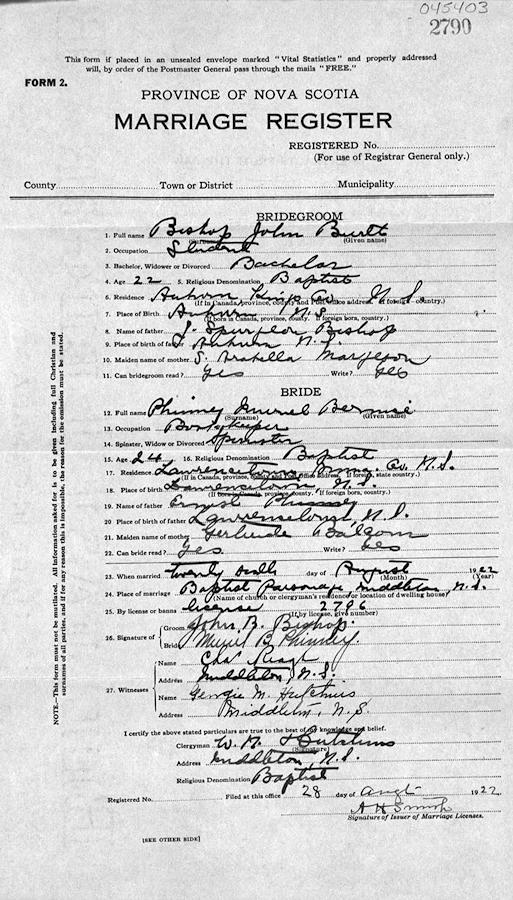 045403
2790
This form if placed in an unsealed envelope marked "Vital Statistics" and properly addressed
will, by order of the Postmaster General pass through the mails "FREE."
FORM 2.
PROVINCE OF NOVA SCOTIA
MARRIAGE REGISTER
REGISTERED No.
(For use of Registrar General only.)
County Town or District Municipality
BRIDEGROOM
1. Full name Bishop John Burtt
(Surname) (Given name)
2. Occupation Student
3. Bachelor, Widower or Divorced Bachelor
4. Age 22 5. Religious Denomination Baptist
6. Residence Auburn Kings Co. N.S.
(If in Canada, province, county and Post office address if foreign country.)
7. Place of Birth Auburn N.S.
(If born in Canada, province, county. If foreign born, country.)
8. Name of father Bishop
9. Place of birth of father Auburn N.S.
10. Maiden name of mother S. Arabella
11. Can bridegroom read? Yes Write? Yes
BRIDE
12. Full name Phinney Muriel Bernice
(Surname) (Given name)
13. Occupation Bookkeeper
14. Spinster, Widow or Divorced Spinster
15. Age 24 16. Religious Denomination Baptist
17. Residence Lawrencetown Anna. Co. N.S.
(If in Canada, province, county and Post office address. If foreign, state country.)
18. Place of birth Lawrencetown N.S.
(If born in Canada, province, county. If foreign born, country.)
19. Name of father Ernest Phinney
20 Place of birth of father Lawrencetown, N.S.
21. Maiden name of mother Gertrude Balcom
22. Can bride read? Yes Write? Yes
23. When married twenty sixth day of August 1922
(Month) (Year)
24. Place of marriage Baptist Parsonage Middleton, N.S.
(Name of church or clergyman's residence or location of dwelling house)
25. By license or banns license 2796
(If by license, give number)
26. Signature of Groom John B. Bishop.
Bride Muriel B. Phinney.
27. Witnesses Name Chas
Address Middleton, N.S.
Name Georgie M. Hutchins
Address Middleton, N.S.
I certify the above stated particulars are true to the best of my knowledge and belief.
Clergyman W. Hutchins
(Signature)
Address Middleton, N.S.
Religious Denomination Baptist
Registered No. Filed at this office 28 day of Augt 1922
A H Smith
Signature of Issuer of Marriage Licenses.
[SEE OTHER SIDE]
NOTE.—This form must not be mutilated. All information asked for is to be given including full Christian and
surnames of all parties, and if for any reason this is impossible, the reason for the omission must be stated.